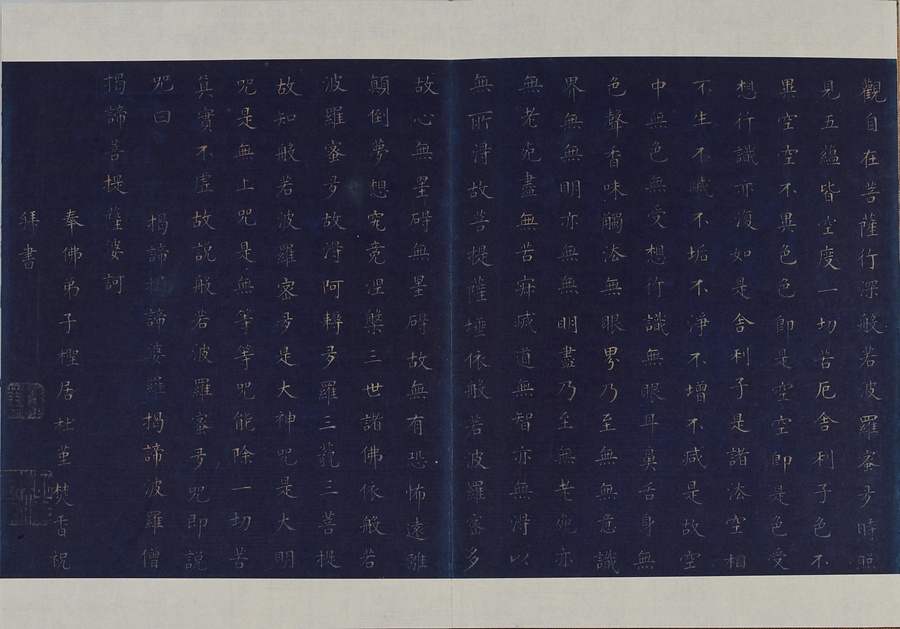 觀自在菩薩行深般若波羅蜜多時照
見五蘊皆空度一切苦厄舍利子色不
異空空不異色色即是空空即是色受
想行識亦復如是舍利子是諸法空相
不生不滅不垢不淨不增不減是故空
中無色無受想行識無眼耳鼻舌身無
色聲香味觸法無眼界乃至無無意識
界無無明亦無無明盡乃至無老死亦
無老死盡無苦寂滅道無智亦無得以
無所得故菩提薩埵依般若波羅蜜多
故心無罣碍無罣碍故無有恐怖遠離
顛倒夢想究竟涅槃三世諸佛依般若
波羅蜜多故得阿耨多羅三藐三菩提
故知般若波羅蜜多是大神咒是大明
咒是無上咒是無等等咒能除一切苦
真實不虛故說般若波羅蜜多咒即說
咒曰 揭諦揭諦婆羅揭諦波羅僧
揭諦菩提薩婆訶
奉佛弟子檉居杜堇焚香祝
拜書